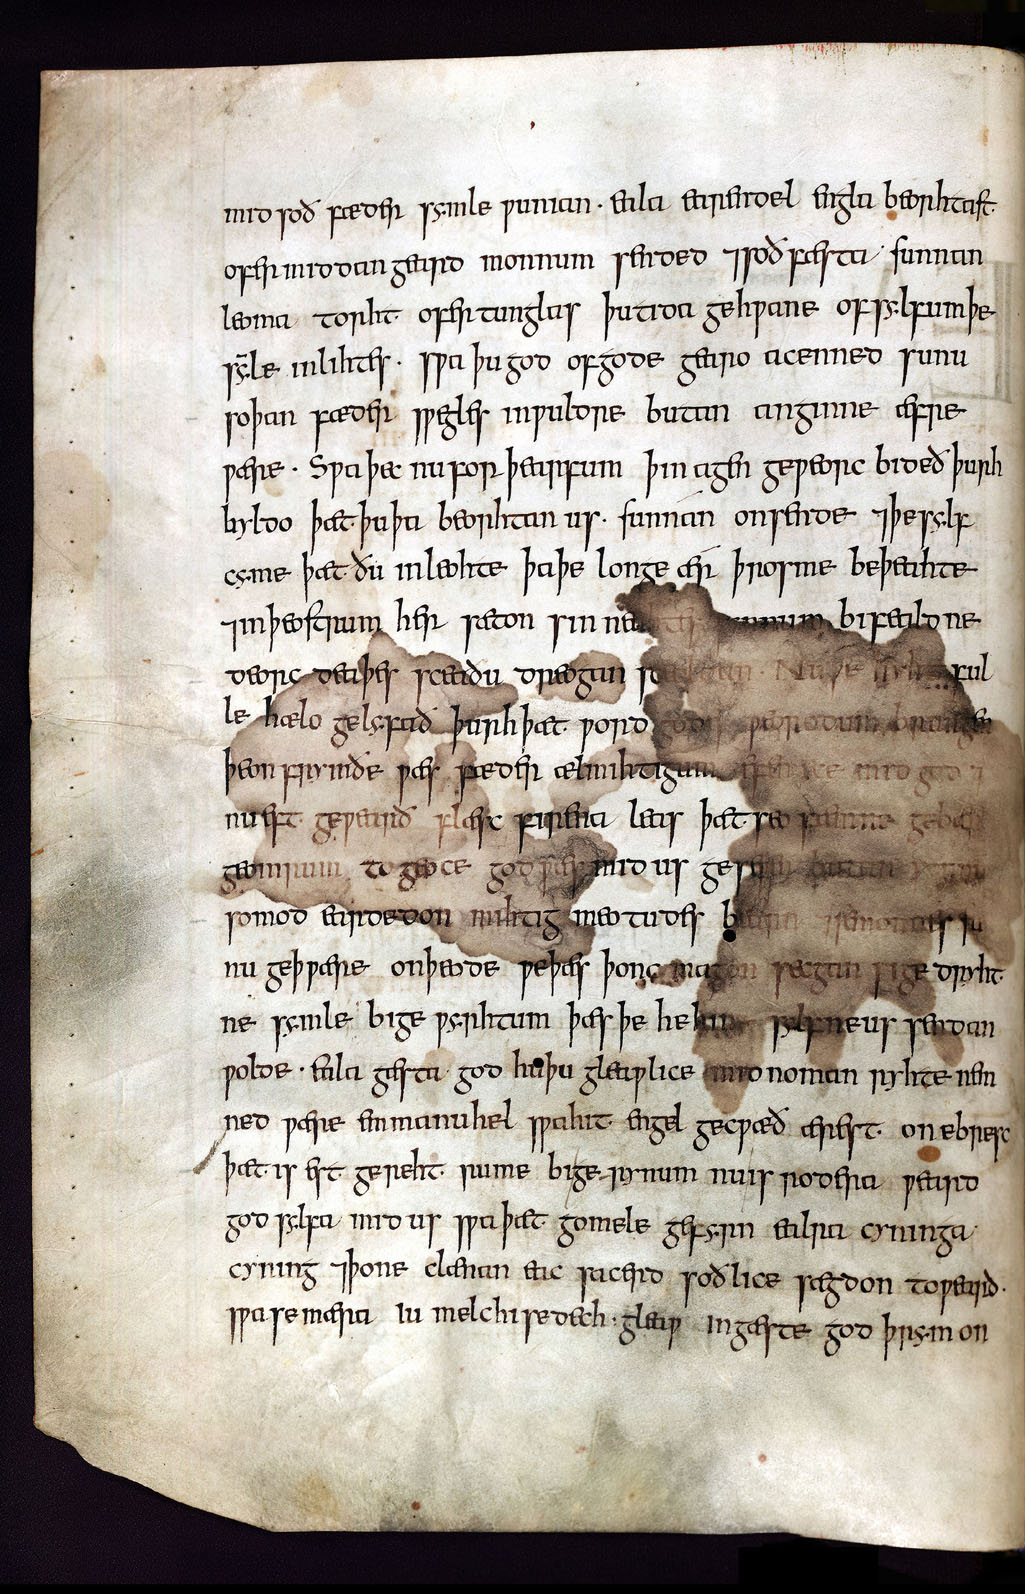 mid soð fæder symle ƿunian · eala earendel engla beorhtast
ofer middangeard monnum sended ⁊soðfæsta sunnan
leoma torht ofer tunglas þu tida gehƿane of sylfum þe
symle inlihtes · sƿa þu god of gode gearo acenned sunu
soþan fæder sƿegles in ƿuldre butan anginne æfre
ƿære · Sƿa þec nu for þearfum þin agen geƿeorc bideð þurh
byldo þæt þu þa beorhtan us · sunnan onsende ⁊þe sylf
cyme þæt ðu inleohte þa þe longe ær þrosme beþeahte
⁊in þeostrum her sæton sin bifealdne
deorc deaþes sceadu dreogan sceoldan · Nu ƿe hyht ful
le hælo gelyfað þurh þæt ƿord godes ƿeorodum brungen
þe on frymðe ƿæs fæder ælmihtigum efenece mid god ⁊
nu eft geƿearð flæsc firena leas þæt seo fæmne gebær
geomrum to geoce god ƿæs mid us geseƿen butan
somod eardedon mihtig meotudes bearn ⁊se monnes su
nu geþƿære on þeode ƿe þæs þonc magon secgan sigedryht
ne symle bi geƿyrhtum þæs þe he hine sylfne us sendan
ƿolde · eala gæsta god hu þu gleaƿlice mid noman ryhte nem
ned ƿære emmanuhel sƿa hit engel gecƿæð ærest · on ebresc
þæt is eft gereht rume bi gerynum nu is rodera ƿeard
god sylfa mid us sƿa þæt gomele gefyrn ealra cyninga
cyning ⁊þone clænan eac sacerd soðlice sægdon toƿeard ·
sƿa se mæra iu melchisedech · gleaƿ in gæste god þrym on